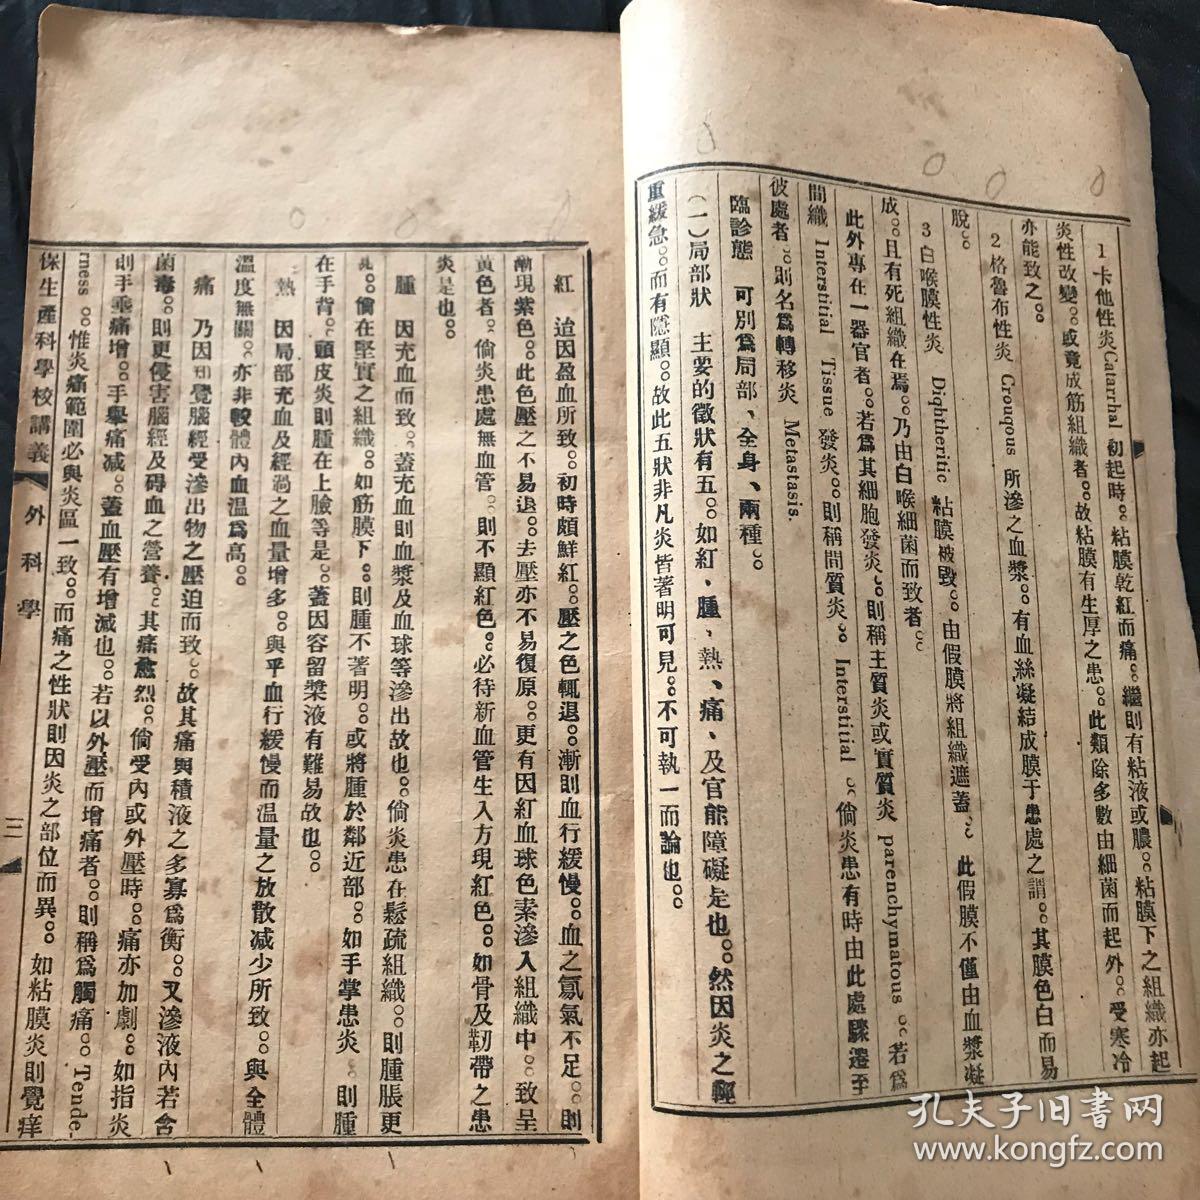 1 卡他性炎 Catarrhal 初起時。。粘膜乾紅而痛。。繼則有粘液或膿。。粘膜下之組織亦起
炎性改變。。或竟成筋組織者。。故粘膜有生厚之患。。此類除多數由細菌而起外。。受寒冷
亦能致之。。
2 格魯布性炎 Crouqous 所滲之血漿。。有血絲凝結成膜于患處之謂。。其膜色白而易
脫。。
3 白喉膜性炎 Diqhtheritic 粘膜被毀。。由假膜將組織遮蓋。。此假膜不僅由血漿凝
成。。且有死組織在焉。。乃由白喉細菌而致者。。
此外專在一器官者。。若爲其細胞發炎。。則稱主質炎或實質炎 parenchymatous 。。若爲
間織 Interstitial Tissue 發炎。。則稱間質炎。。 Interstitial 。。倘炎患有時由此處驟遷至
彼處者。。則名爲轉移炎 Metastasis.
臨診態 可別爲局部、全身、兩種。。
(一)局部狀 主要的徵狀有五。。如紅、腫、熱、痛、及官能障礙是也。。然因炎之輕
重緩急。。而有隱顯。。故此五狀非凡炎皆著明可見。。不可執一而論也。。
紅 迨因盈血所致。。初時頗鮮紅。。壓之色輒退。。漸則血行緩慢。。血之氯氣不足。。則
漸現紫色。。此色壓之不易退。。去壓亦不易復原。。更有因紅血球色素滲入組織中。。致呈
黃色者。。倘炎患處無血管。。則不顯紅色。。必待新血管生入方現紅色。。如骨及韌帶之患
炎是也。。
腫 因充血而致。。蓋充血則血漿及血球等滲出故也。。倘炎患在鬆疏組織。。則腫脹更
見。。倘在堅實之組織。。如筋膜下。。則腫不著明。。或將腫於鄰近部。。如手掌患炎。則腫
在手背。。頭皮炎則腫在上臉等是。。蓋因容留漿液有難易故也。。
熱 因局部充血及經過之血量增多。。與平血行緩慢而溫量之放散減少所致。。與全體
溫度無關。。亦非較體內血溫爲高。。
痛 乃因知覺腦經受滲出物之壓迫而致。。故其痛與積液之多寡爲衡。。又滲液內若含
菌毒。。則更侵害腦經及碍血之營養。。其痛愈烈。。倘受內或外壓時。。痛亦加劇。。如指炎
則手垂痛增。。手舉痛减。。蓋血壓有增減也。。若以外壓而增痛者。。則稱爲觸痛。。Tende-
rness 。。惟炎痛範圍必與炎區一致。。而痛之性狀則因炎之部位而異。。如粘膜炎則覺痒
保生產科學校講義 外科學 三
孔夫子旧書网
www.kongfz.com